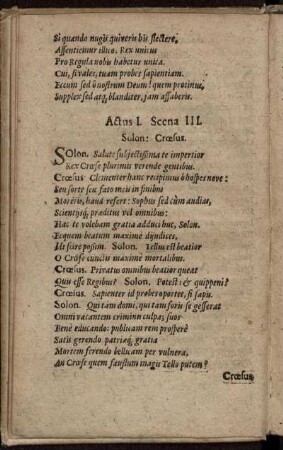 Si quando nugis quiveris hîs flectere,
Assentietur illico. Rex unicus
Pro Regula nobis habetur unica.
Cui, si vales, tuam probes sapientiam.
Eccum sed ô nostrum Deum! quem protinus
Supplex sed atq; blanditer, jam affaberis.
Actus I. Scena III.
Solon: Crœsus.
Solon. Salute subjectissima te impertior
Rex Crœse plurimis verende gentibus.
Crœsus Clementer hanc recipimus ô hospes nove:
Sen forte seu fato meis in finibus
Moreris, haud refert: Sophus sed cùm audias,
Scientijsq; præditus vel omnibus:
Hac te volebam gratia adduci huc, Solon.
Ecquem beatum maximè dijudices,
Ut scire possim. Solon. Tellus est beatior
O Crœse cunctis maximè mortalibus.
Crœsus. Privatus omnibus beatior queat
Qui esse Regibus? Solon. Potest: & quippeni?
Crœsus. Sapienter id probes oportet, si sapis.
Solon. Qui tam domi, quàm foris se gesserat
Omni vacantem criminum culpa; suos
Benè educando: publicam rem prosperè
Satis gerendo patriæq; gratia
Mortem ferendo bellicam per vulnera,
An Crœse quem faustum magis Tello putem?
Crœsus.